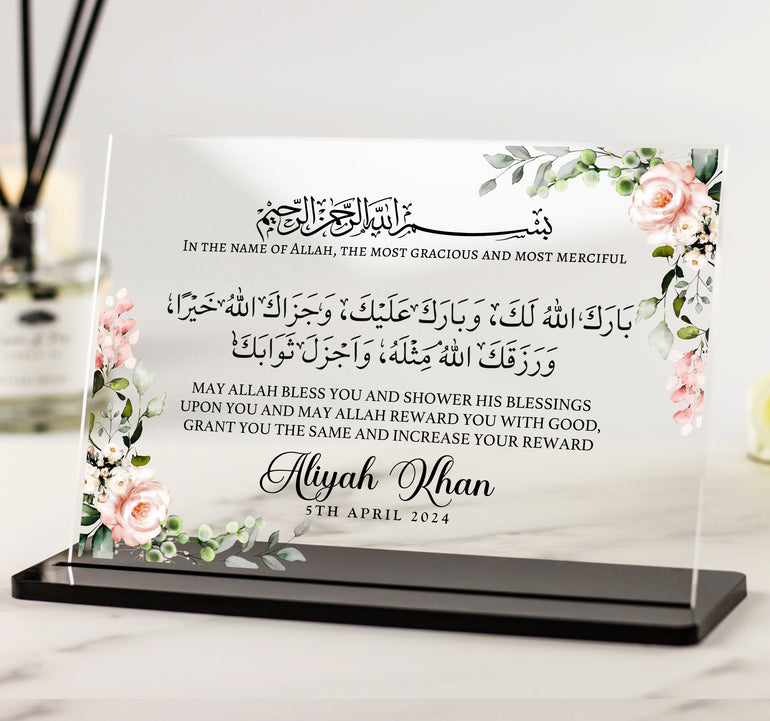 بسم الله الرحمن الرحيم
IN THE NAME OF ALLAH, THE MOST GRACIOUS AND MOST MERCIFUL
بَارَكَ اللهُ لَكَ، وَبَارَكَ عَلَيْكَ، وَجَزَاكَ اللهُ خَيْرًا،
وَرَزَقَكَ اللهُ مِثْلَهُ، وَاَجْزَلَ ثَوَابَكَ
MAY ALLAH BLESS YOU AND SHOWER HIS BLESSINGS
UPON YOU AND MAY ALLAH REWARD YOU WITH GOOD,
GRANT YOU THE SAME AND INCREASE YOUR REWARD
Aliyah Khan
5TH APRIL 2024